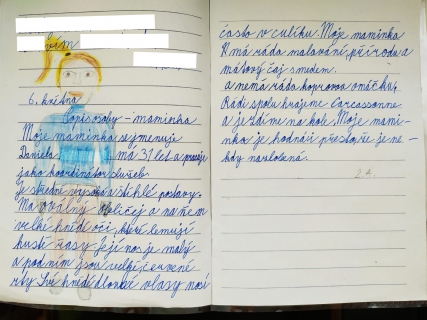 6. května
Popis osoby - maminka
Moje maminka se jmenuje
Daniela má 37 let a pracuje
jako koordinátor služeb.
Je středně vysoká a štíhlé postavy.
Má oválný obličej a na něm
velké hnědé oči, které lemují
husté řasy. Její nos je malý
a pod ním jsou velké, červené
rty. Své hnědé dlouhé vlasy nosí
často v culíku. Moje maminka
má ráda malování, přírodu a
mátový čaj s medem.
a nemá ráda koprovou omáčku.
Rádi spolu hrajeme Carcassonne
a jezdím na kole. Moje mami-
nka je hodná i přestože je ně-
kdy naložená.